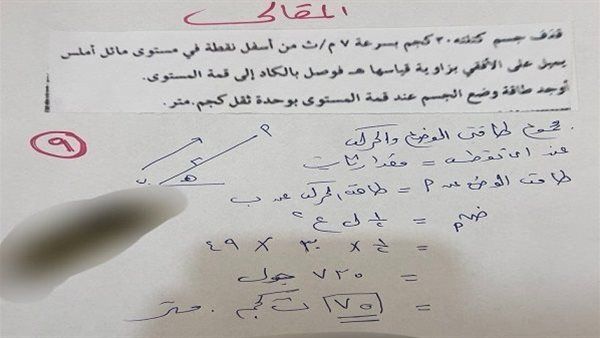 المقالى
قذف جسم كتلته ٣٠ كجم بسرعة ٧ م/ث من أسفل نقطة في مستوى مائل أملس
يميل على الأفقي بزاوية قياسها هـ فوصل بالكاد إلى قمة المستوى.
أوجد طاقة وضع الجسم عند قمة المستوى بوحدة ثقل كجم.متر.
٩
مجموع طاقتى الوضع والحركة
عند اى نقطه = مقدار ثابت
طاقة الوضع عند م = طاقة الحركة عند ب
= ½ ك ع٢
= ½ × ٣٠ × ٤٩
= ٧٣٥ جول
= ٧٥ ث كجم . متر